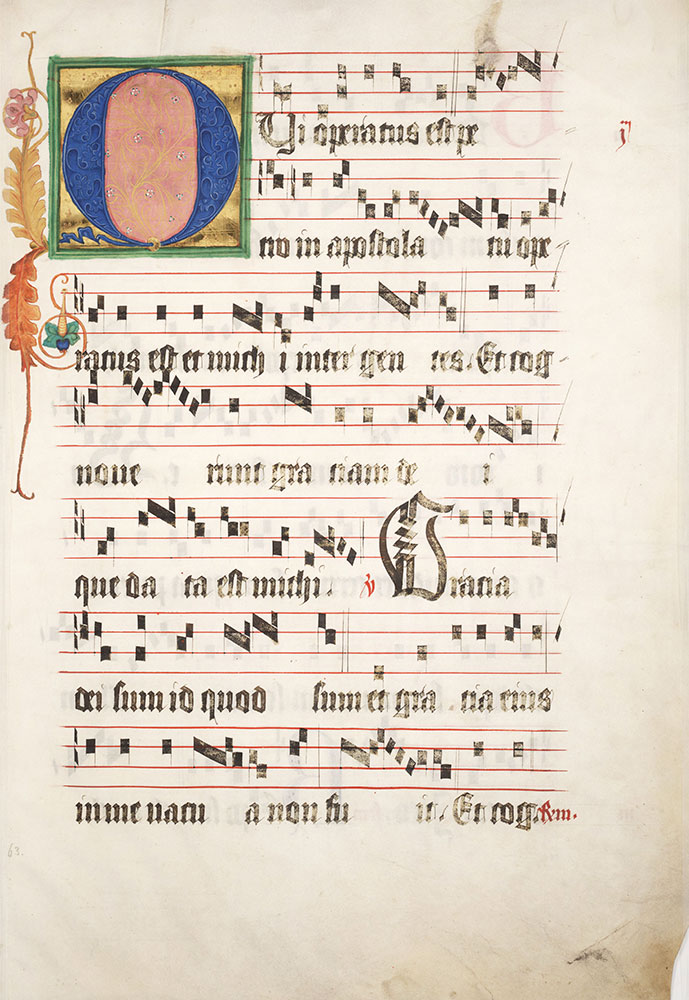 QUi operatus est pe
tro in apostola tu ope
ratus est et mich i inter gen tes. Et cog
noue runt gra ciam de i
que da ta est michi. V Gracia
dei sum id quod sum et gra cia eius
in me uacu a non fu it. Et cog. Rm.
63.